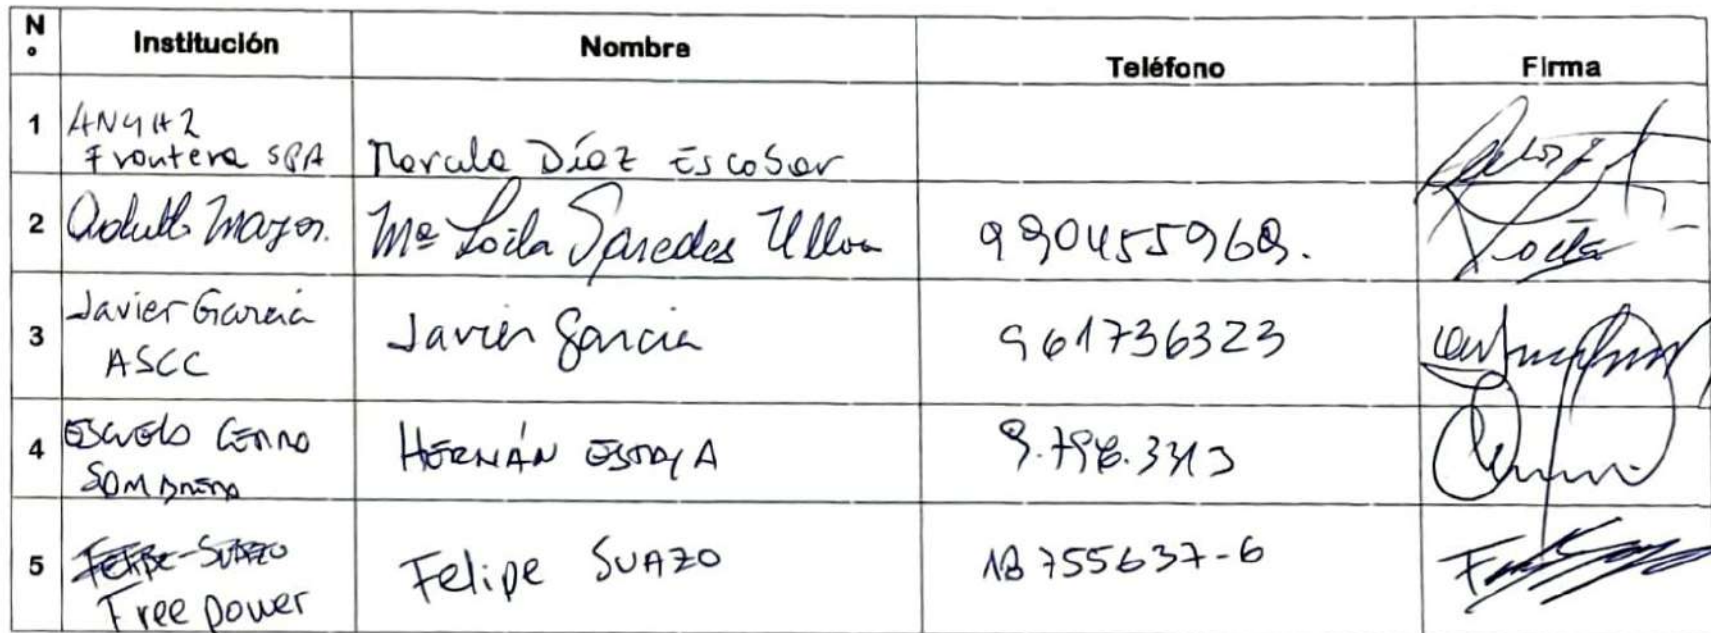 N° Institución Nombre Teléfono Firma
1 ANYH2
Frontera SPA Marcela Díaz Escobar
2 Adulto Mayor. Mª Loila Paredes Ulloa 990455969.
3 Javier García
ASCC Javier García 961736323
4 ESCUELA CERRO
SOMBRERO HERNÁN 9.798.3313
5 Felipe Suazo
Free power Felipe SUAZO 18755637-6